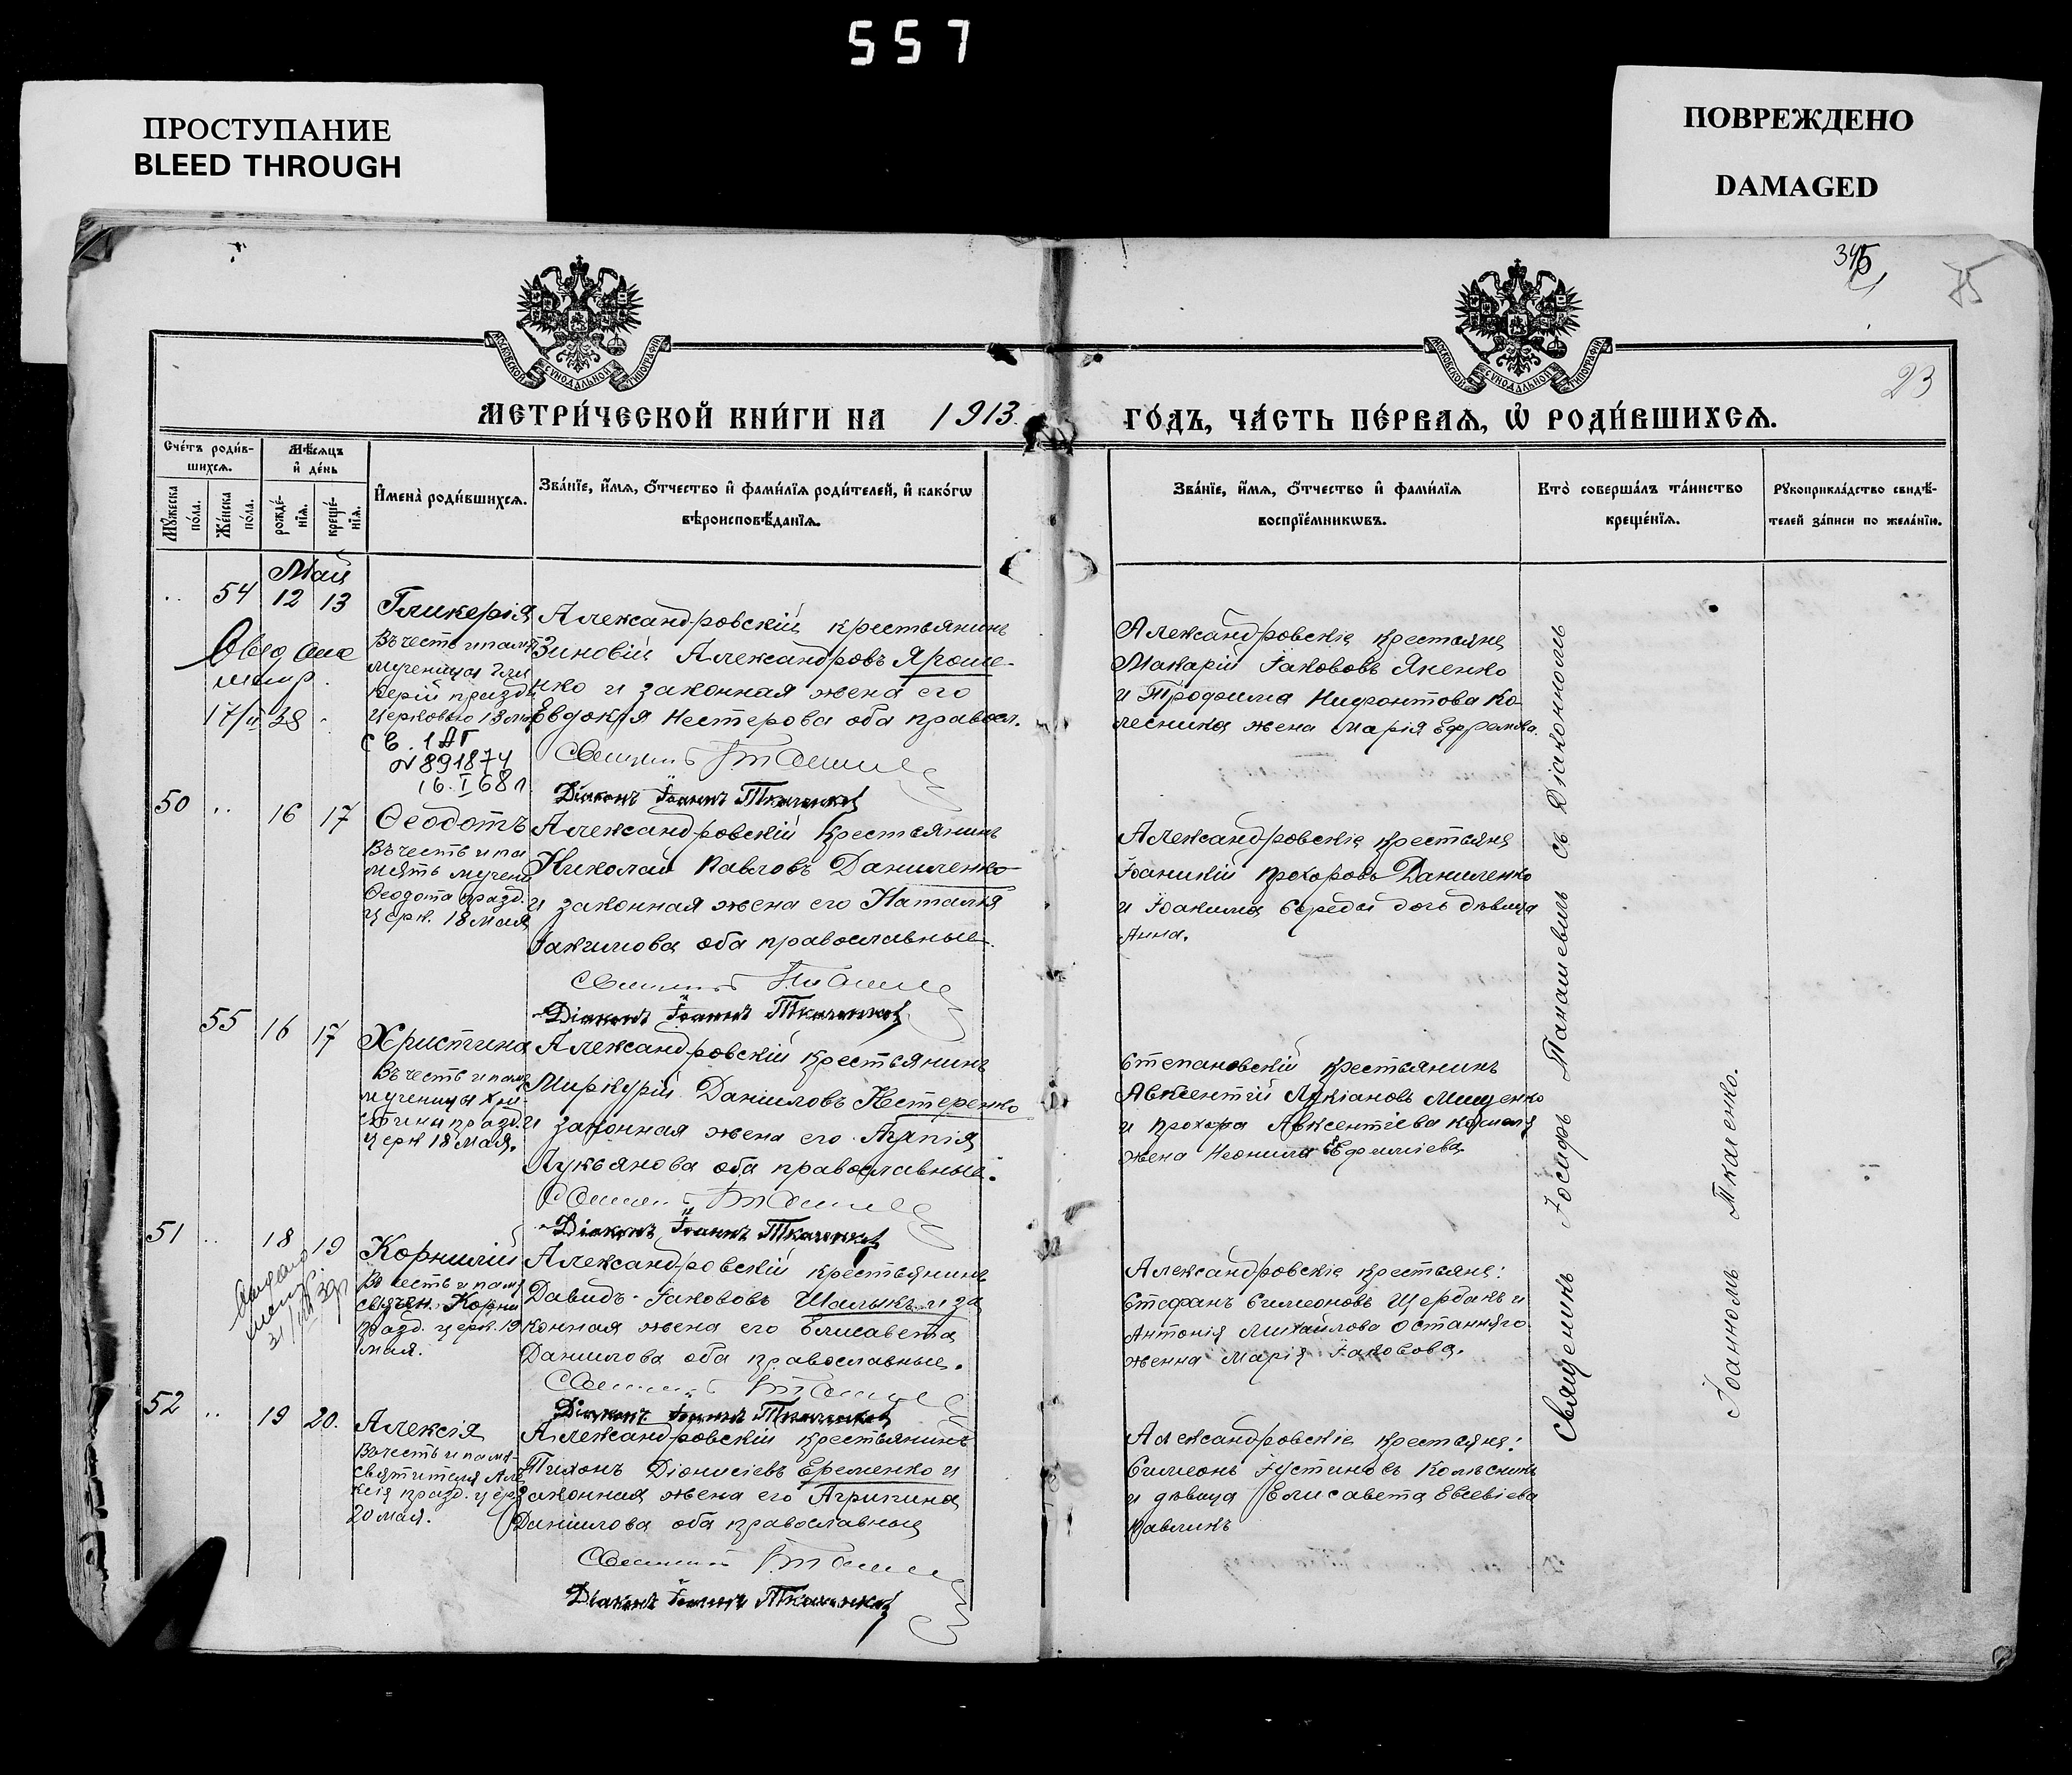 557
ПРОСТУПАНИЕ
BLEED THROUGH
ПОВРЕЖДЕНО
DAMAGED
345
75
23
МОСКОВСКОЙ СѴНОДАЛЬНОЙ ТИПОГРАФІИ
МОСКОВСКОЙ СѴНОДАЛЬНОЙ ТИПОГРАФІИ
МЕТРИ́ЧЕСКОЙ КНИ́ГИ НА 1913.
ГО́ДЪ, ЧА́СТЬ ПЕ́РВАѦ, Ѽ РОДИ́ВШИХСѦ.
Сче́тъ роди́в-
шихсѧ.
Мѣ́сѧцъ
и҆ де́нь
Мꙋ́жеска
по́ла.
Же́нска
по́ла.
рожде́-
нїѧ.
креще́-
нїѧ.
И҆мена̀ роди́вшихсѧ.
Зва́нїе, и҆́мѧ, ѻ҆́тчество и҆ фами́лїѧ роди́телей, и҆ како́гѡ
вѣроисповѣ́данїѧ.
Зва́нїе, и҆́мѧ, ѻ҆́тчество и҆ фами́лїѧ
воспрїе́мникѡвъ.
Кто̀ соверша́лъ та́инство
креще́нїѧ.
Рꙋкоприкла́дство свидѣ́-
телей за́писи по жела́нїю.
Май
54 12 13
Гликерія
Въ честь и пам.
мученицы Гли
керіи празд.
Церковью 13 мая
17/II 38
св. 1 АГ
№ 891874
16.I 68 г
Александровскій крестьянинъ
Зиновій Александровъ Яроше-
нко и законная жена его
Евдокія Нестерова оба правосл.
Діаконъ Іоаннъ Ткаченко
Александровскіе крестьяне
Макарій Іакововъ Яненко
и Трофима Нифонтова Ко-
лесника жена Марія Ефремова.
50 16 17
Ѳеодотъ
Въ честь и па
мять мучени
Ѳеодота празд.
церк. 18 мая
Александровскій крестьянинъ
Николай Павловъ Даниленко
и законная жена его Наталія
Іакимова оба православные.
Діаконъ Іоаннъ Ткаченко
Александровскіе крестьяне
Іоаникій Прохоровъ Даниленко
и Іоакима Середы дочь дѣвица
Анна.
55 16 17
Христина
Въ честь и пам.
мученицы Хри-
стины празд.
церк 18 мая.
Александровскій крестьянинъ
Миркурій Даниловъ Нестеренко
и законная жена его Агапія
Лукьянова оба православные.
Діаконъ Іоаннъ Ткаченко
Степановскій крестьянинъ
Авксентій Лукіановъ Мищенко
и Прохора Авксентіева
жена Неонила Ефиміева
51 18 19
Корнилій
Въ честь и пам.
священ. Корни
празд. церк. 19
мая.
Александровскій крестьянинъ
Давидъ Іакововъ Шалыкъ и за
конная жена его Елисавета
Данилова оба православные.
Діаконъ Іоаннъ Ткаченко
Александровскіе крестьяне:
Стефанъ Симеоновъ Щербакъ и
Антонія Михайлова Останняго
жена Марія Іаковова.
52 19 20.
Алексія
Въ честь и пам.
святителя Але
ксія празд. церк
20 мая.
Александровскій крестьянинъ
Тихонъ Діонисіевъ Еременко и
законная жена его Агрипина
Данилова оба православные
Діаконъ Іоаннъ Ткаченко
Александровскіе крестьяне:
Симеонъ Іустиновъ Колѣсникъ
и дѣвица Елисавета Евсевіева
Павликъ
Священникъ Іосифъ Танашевичъ съ Діакономъ
Іоанномъ Ткаченко.